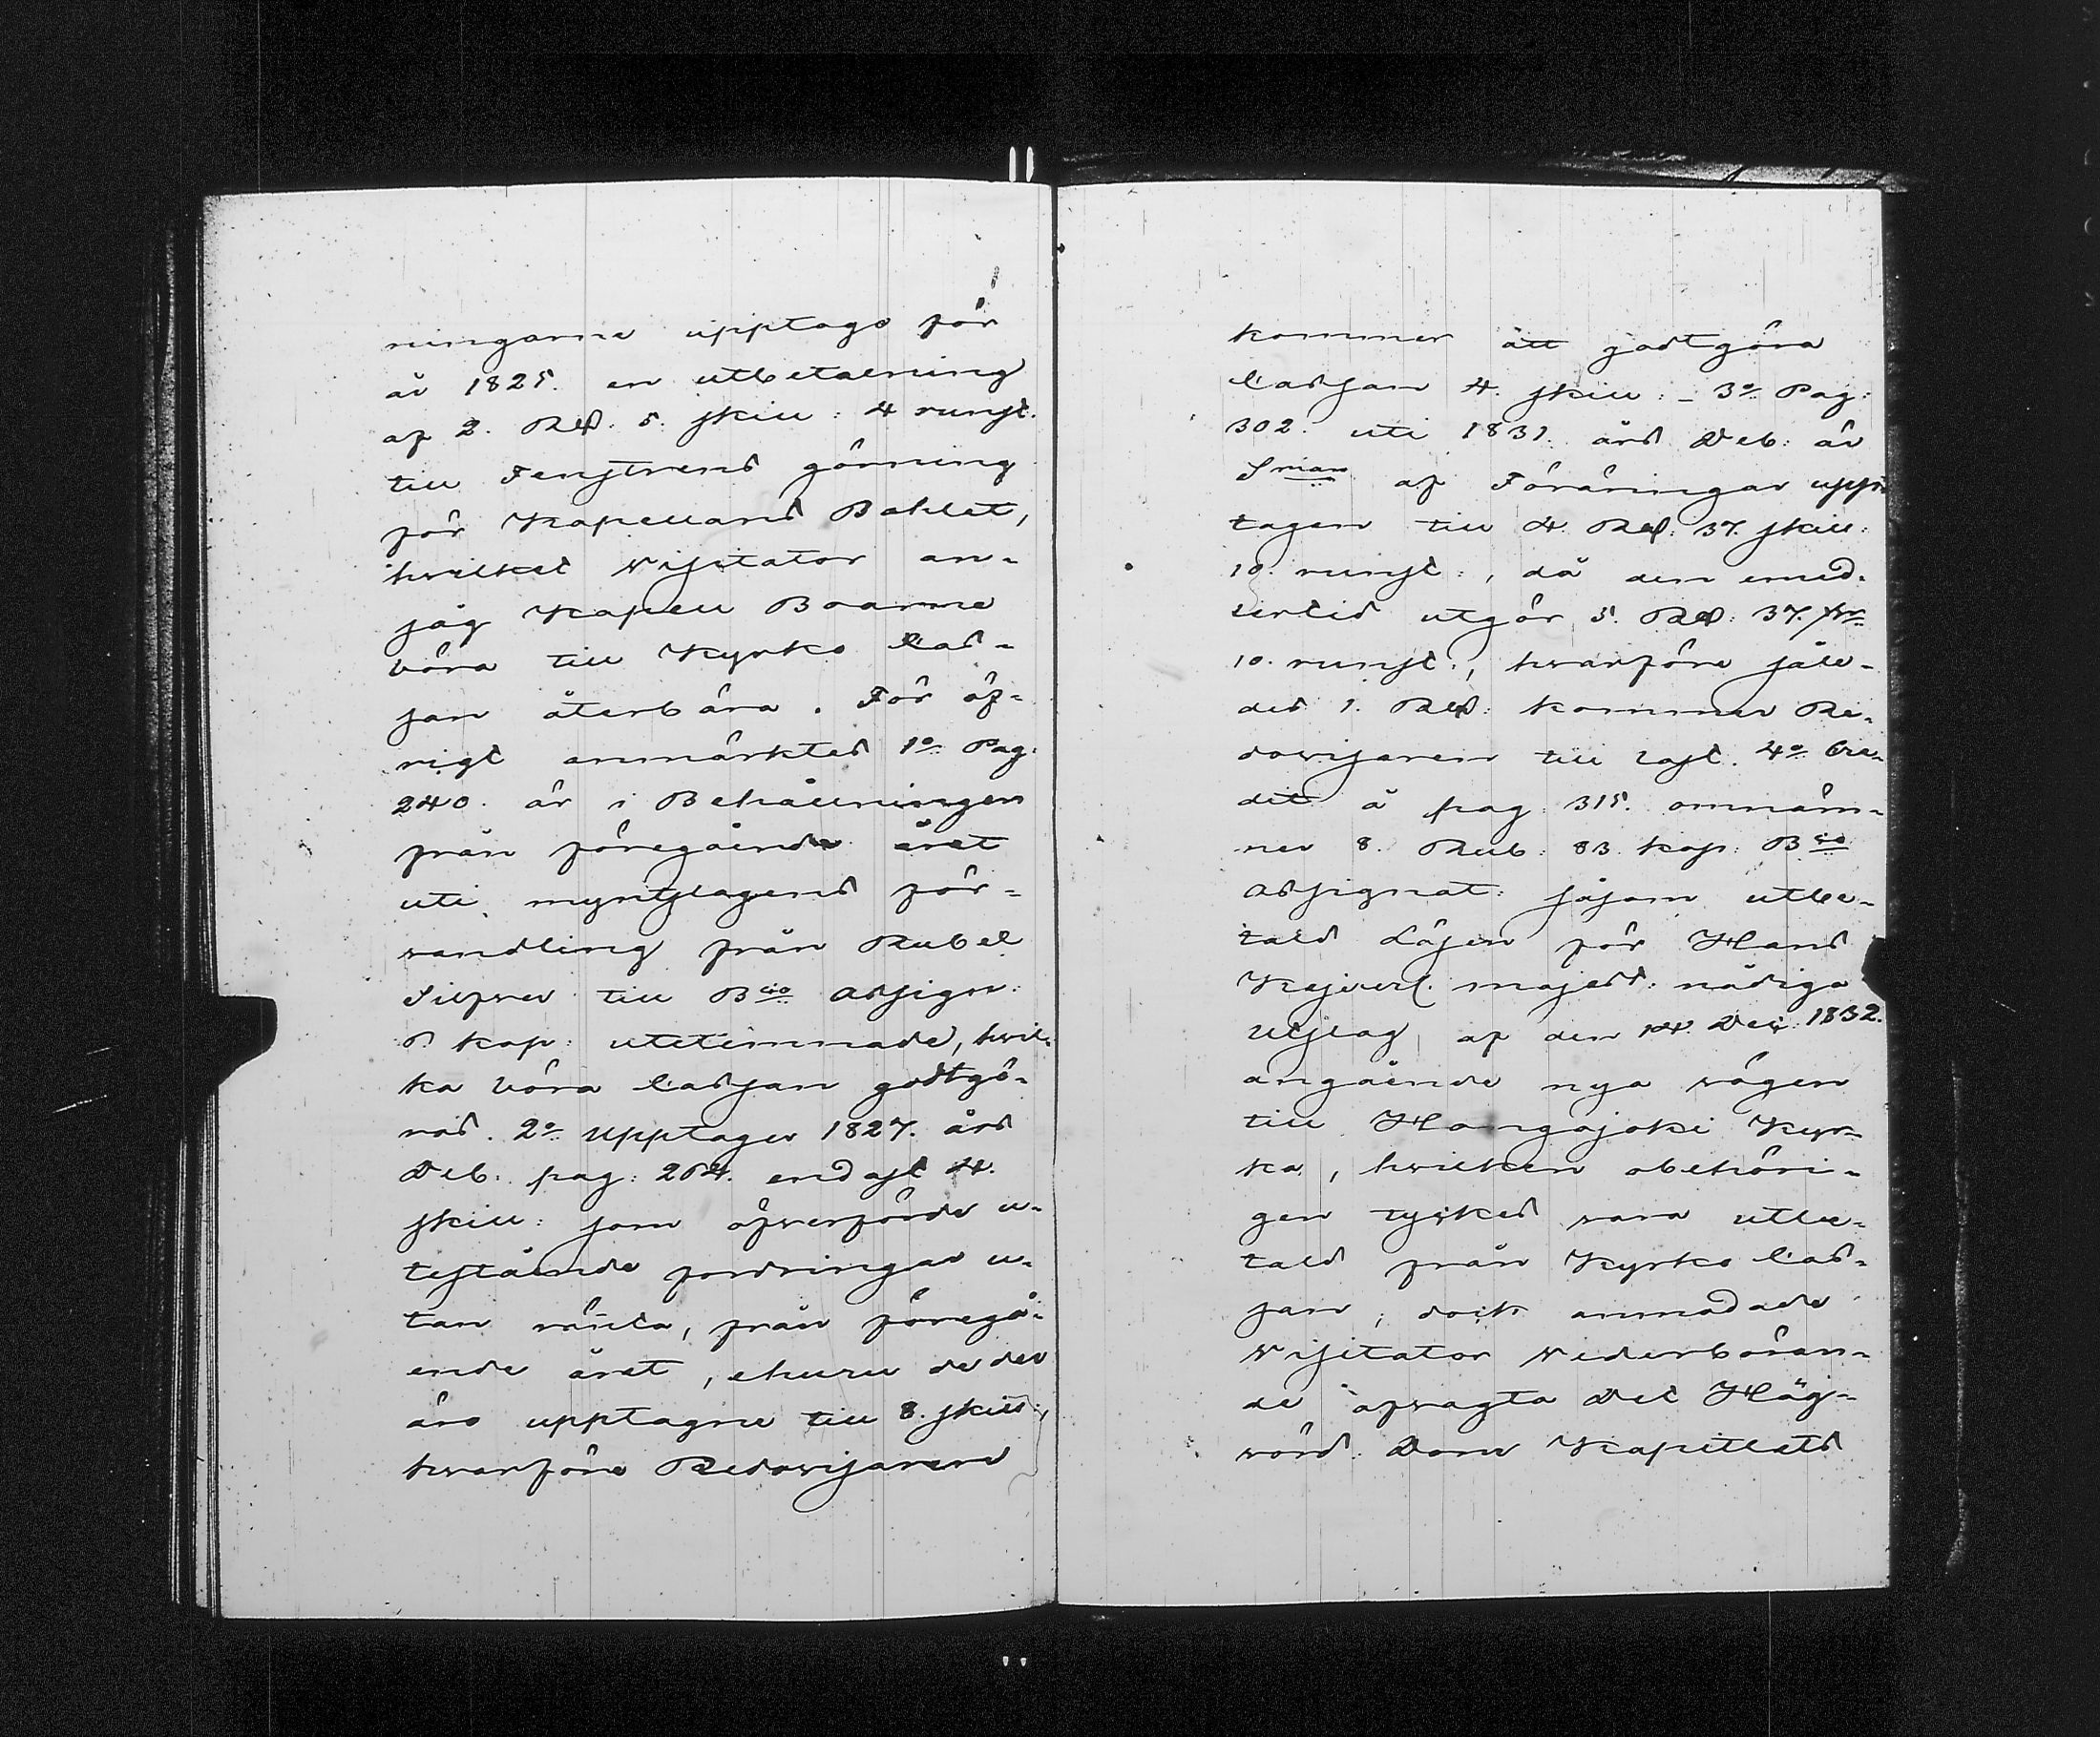 ningarne upptags för
år 1825. en utbetalning
af 2. Rd. 5. skill: 4 runst.
till Fenstrens görning
för Kapellans Bohlet,
hvilket Visitator an-
såg Kapell Boarne
böra till Kyrko Cas-
san återbära. För öf-
rigt anmärktes 1o Pag.
240. är i Behållningen
från föregående året
uti myntslagens för-
vandling från Rubel
Silfver till Bco Assign.
6 kop: utelemnade, hvil-
ka böra Cassan godtgö-
ras. 2o Upptages 1827. års
Deb. pag: 264. endast 4.
skill: som öfverförde u-
testående fordringar u-
tan ränta, från föregå-
ende året, ehuru de der
äro upptagne till 8. skill:,
hvarföre Redovisaren
kommer att godtgöra
Cassan 4. skill: - 3o Pag:
302. uti 1831. års Deb: är
Sman af Föräringar upp-
tagen till 4. Rd: 37. skill:
10. runst:, då den emed-
lertid utgör 5. Rd: 37. s
10. runst:, hvarföre såle-
des 1. Rd: kommer Re-
dovisaren till last. 4o Cre-
dit å pag: 315. omnäm-
nes 8. Rub: 83. kop: Bco
Assignat: såsom utbe-
tald Lösen för Hans
Kejserl. Majest: nådiga
Utslag af den 14. Dec: 1832.
angående nya vägen
till Haugajoki Kyr-
ka, hvilken obehöri-
gen tyckes vara utbe-
tald från Kyrko Cas-
san; dock anmodade
Visitator Vederböran-
de afvagta Det Hög-
vörd. Dom Kapitlets